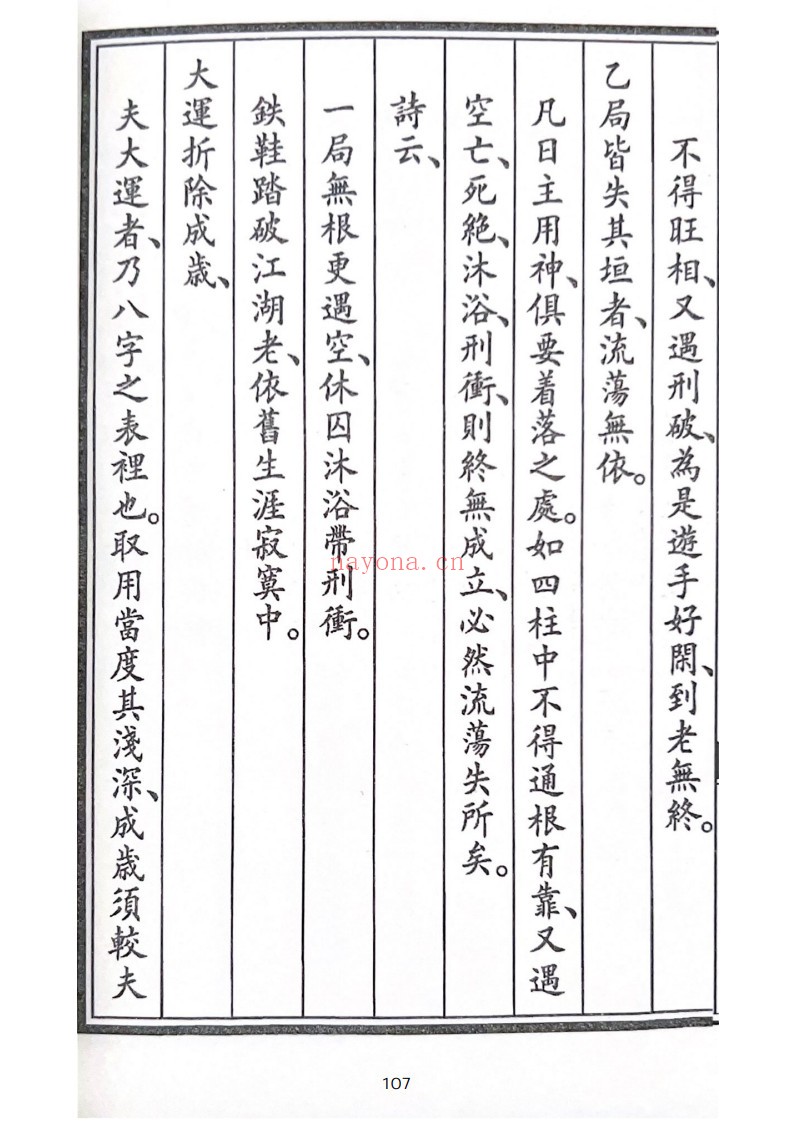 不得旺相、又遇刑破、為是遊手好閑、到老無終。
乙局皆失其垣者、流蕩無依。
凡日主用神、俱要着落之處。如四柱中不得通根有靠、又遇
空亡、死絶、沐浴、刑衝、則終無成立、必然流蕩失所矣。
詩云、
一局無根更遇空、休囚沐浴帶刑衝。
鉄鞋踏破江湖老、依舊生涯寂寞中。
大運折除成歲、
夫大運者、乃八字之表裡也。取用當度其淺深、成歲須較夫
nayona.cn
107